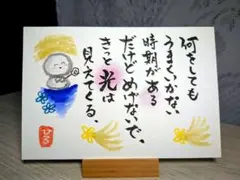 何をしても
うまくいかない
時期がある
だけどめげないで、
きっと光は
見えてくる。